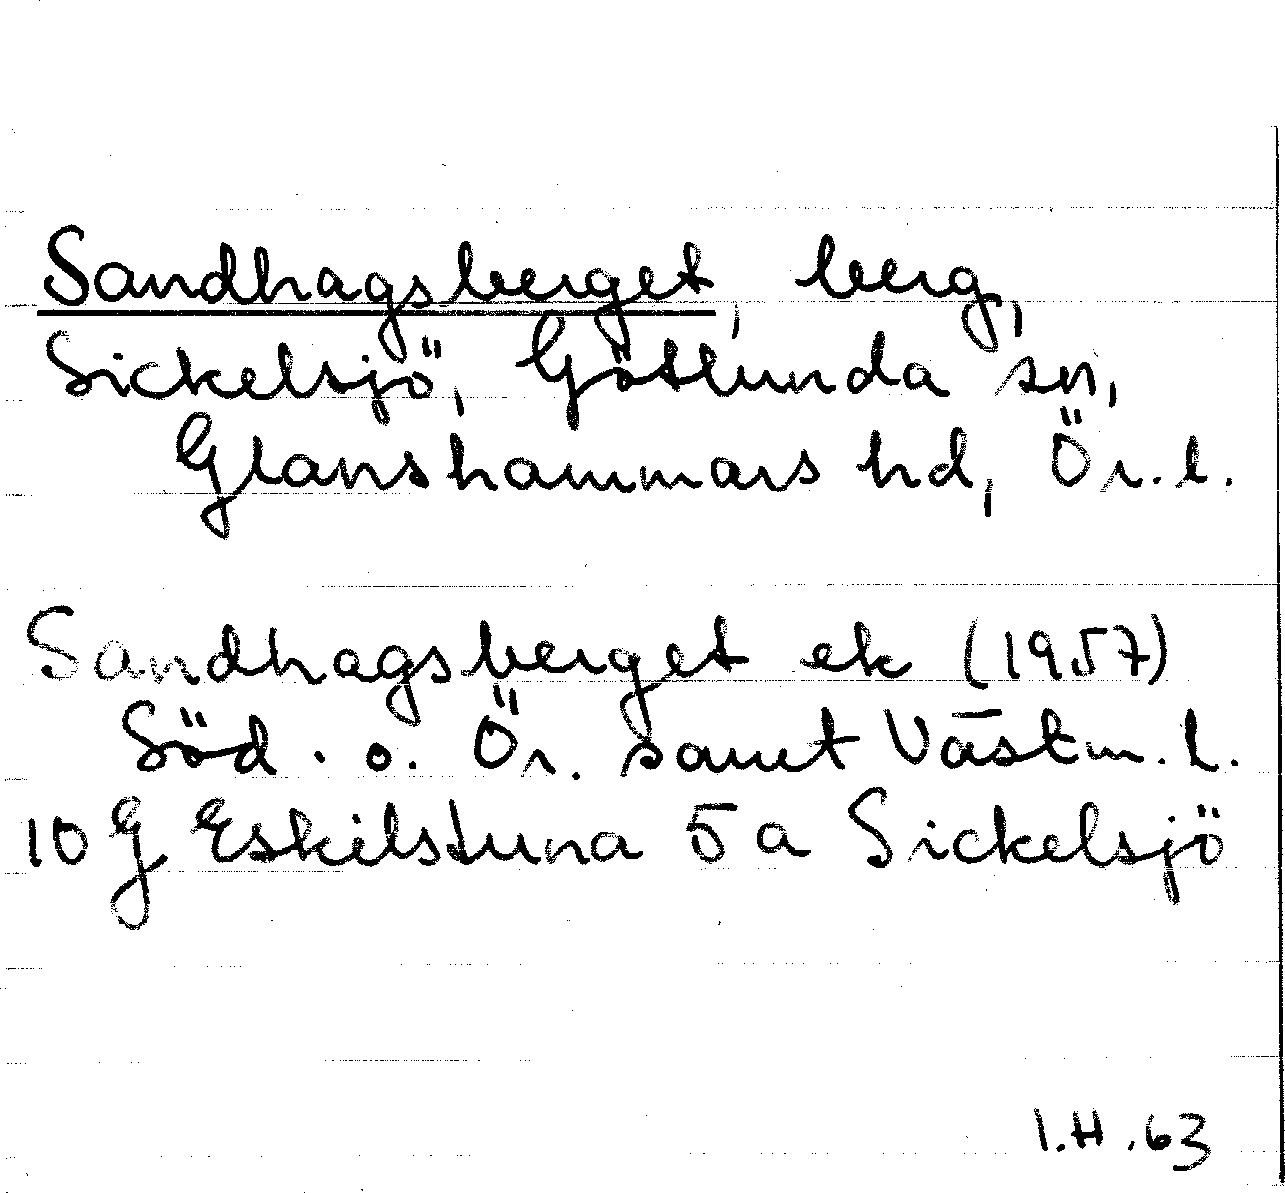 Sandhagsberget, berg,
Sickelsjö, Götlunda sn,
Glanshammars hd, Ör. l.
Sandhagsberget ek (1957)
Söd. o. Ör. samt Västm. l.
10 G Eskilstuna 5 a Sickelsjö
I.H. 63